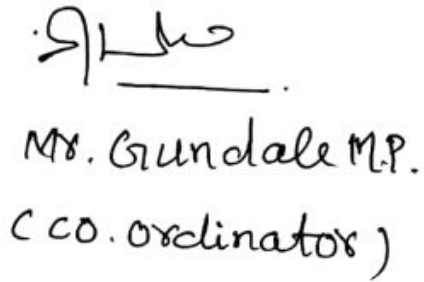 Mr. Gundale M.P.
(co.ordinator)